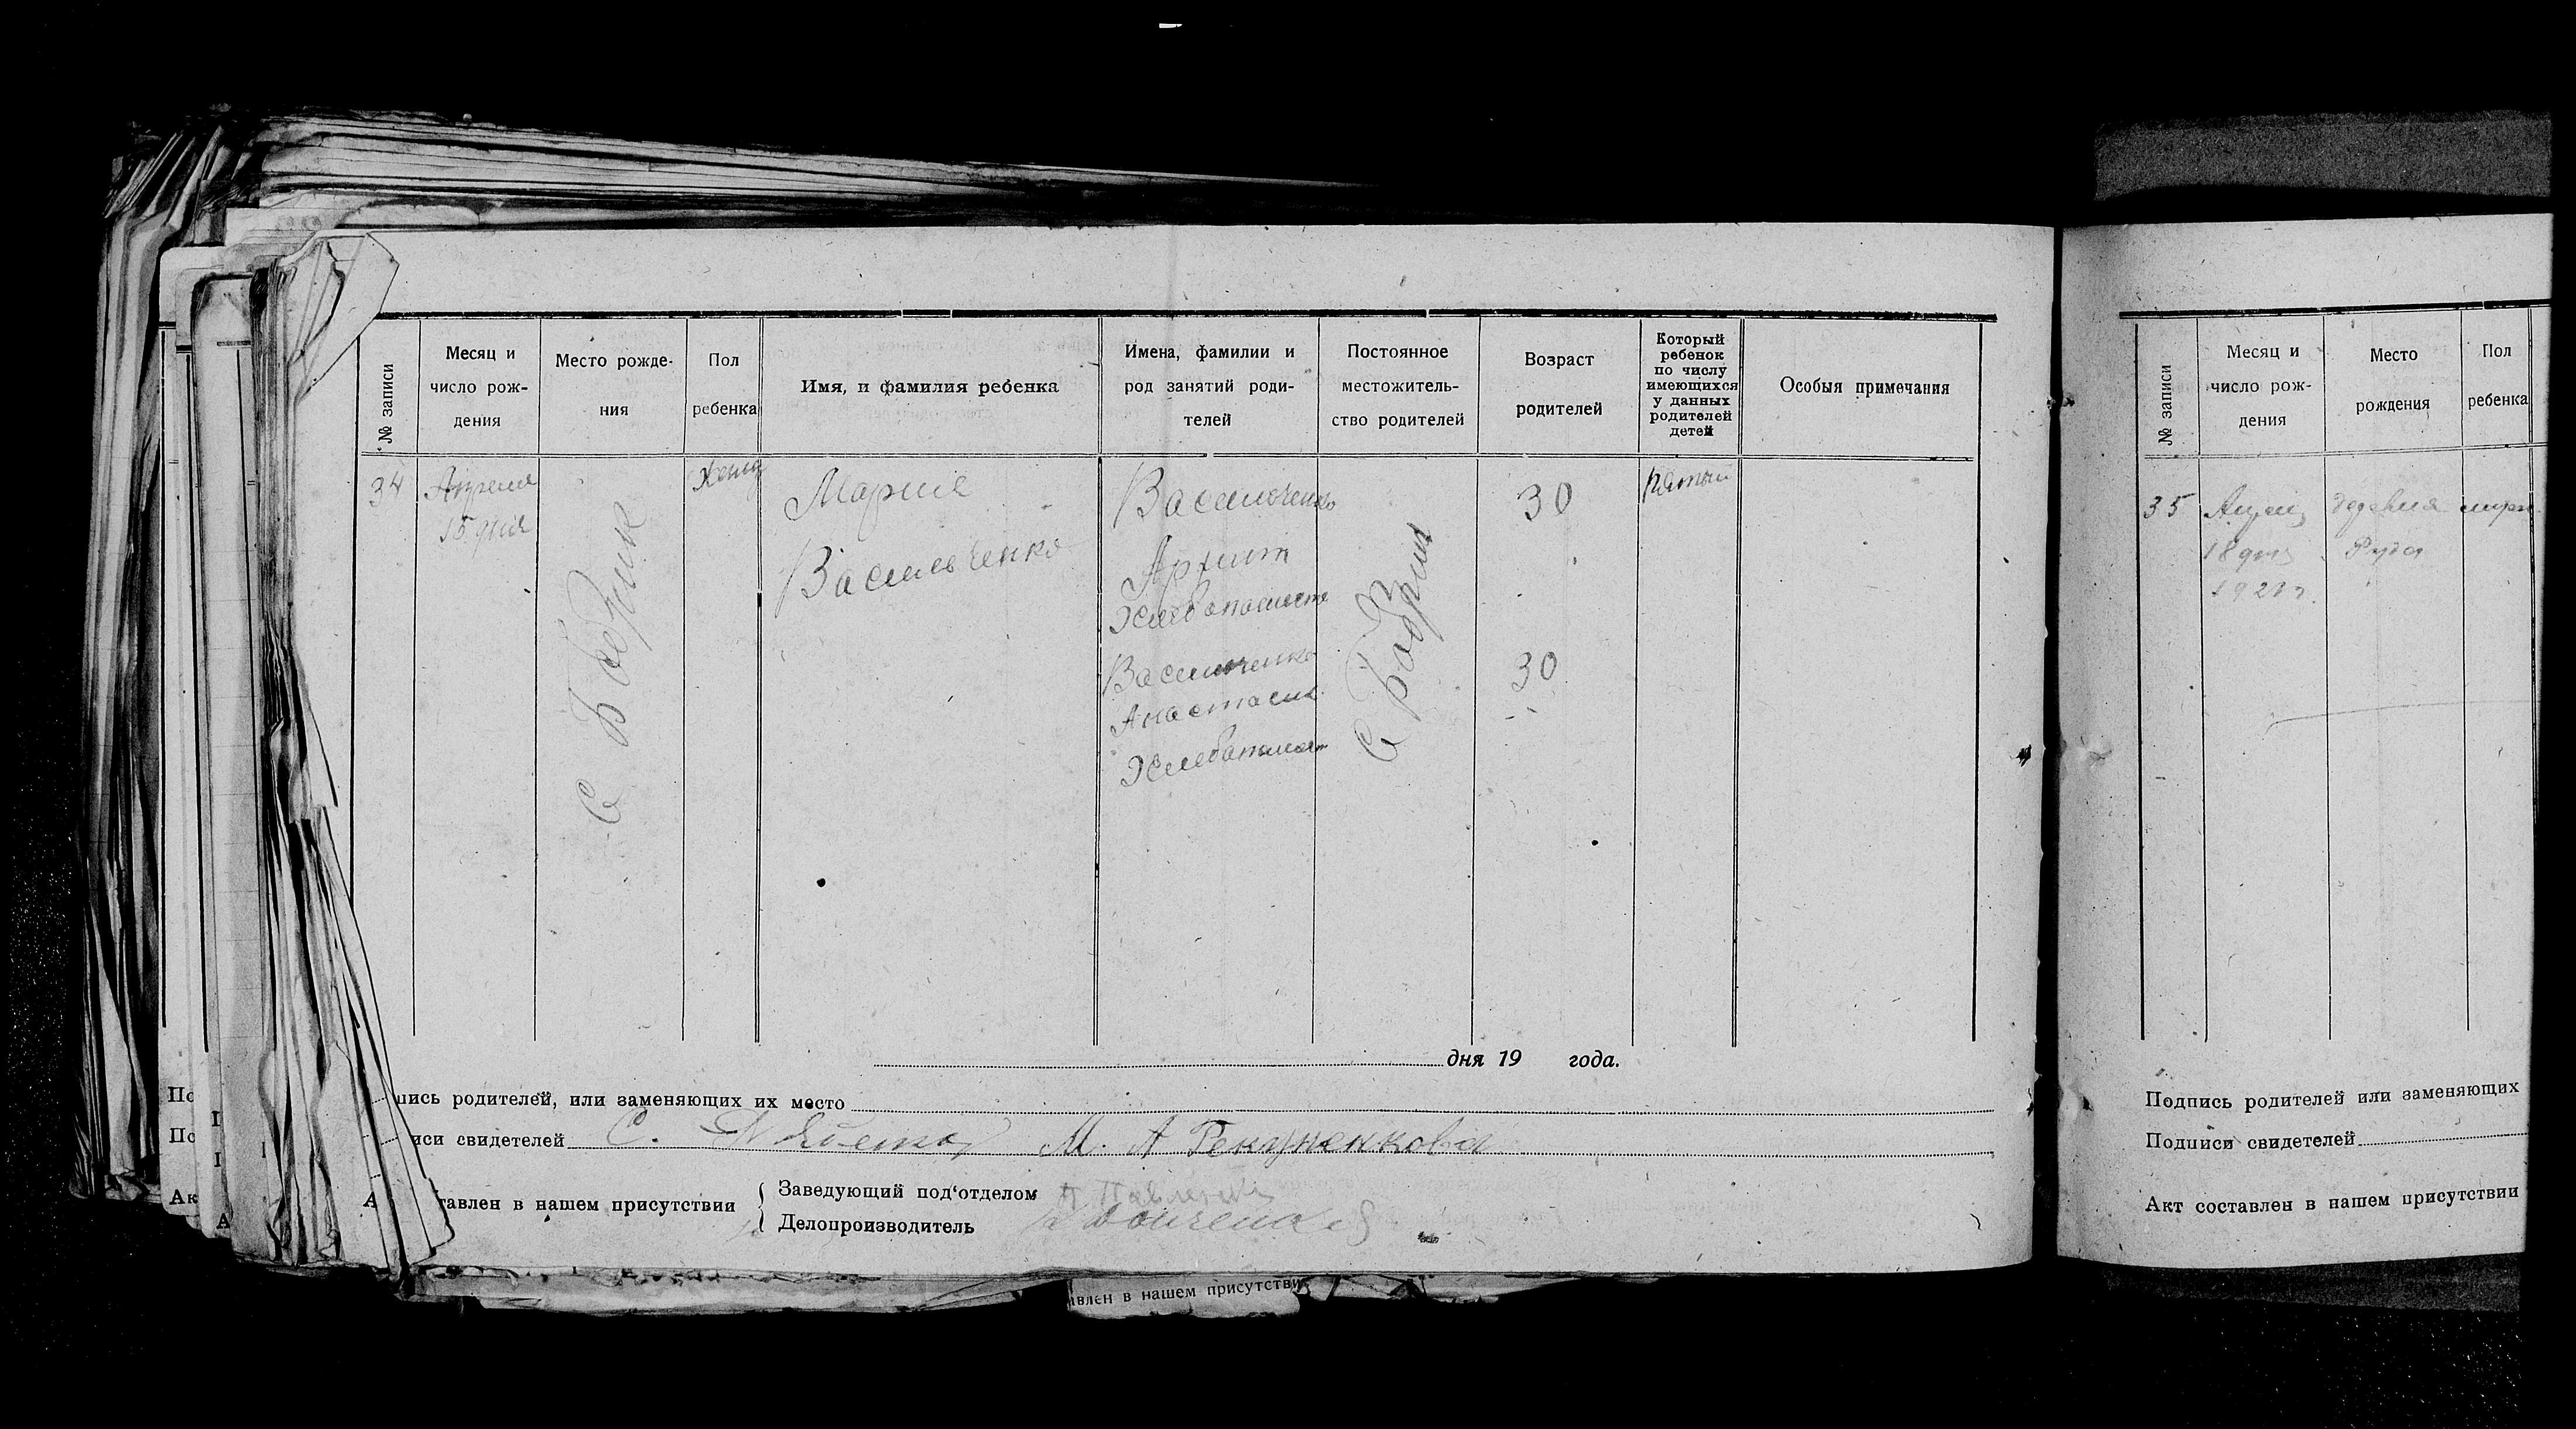 № записи
Месяц и
число рож-
дения
Место рожде-
ния
Пол
ребенка
Имя, и фамилия ребенка
Имена, фамилии и
род занятий роди-
телей
Постоянное
местожитель-
ство родителей
Возраст
родителей
Который
ребенок
по числу
имеющихся
у данных
родителей
детей
Особыя примечания
34
Апреля
15 дня
С Бобрик
Женщ
Мария
Васильченко
Васильченко
Архип
Хлебопашест
Васильченко
Анастасия
Хлебопашест
С Бобрик
30
30
Пятый
дня 19 года.
пись родителей, или заменяющих их место
иси свидетелей С. М. А Рекуненкова
А тавлен в нашем присутствии
Заведующий под'отделом
Делопроизводитель
влен в нашем присутстви
По
По
Ак
А
№ записи
Месяц и
число рож-
дения
Место
рождения
Пол
ребенка
35
18 дня
1921 г.
деревня
Руда
Подпись родителей или заменяющих
Подписи свидетелей
Акт составлен в нашем присутствии